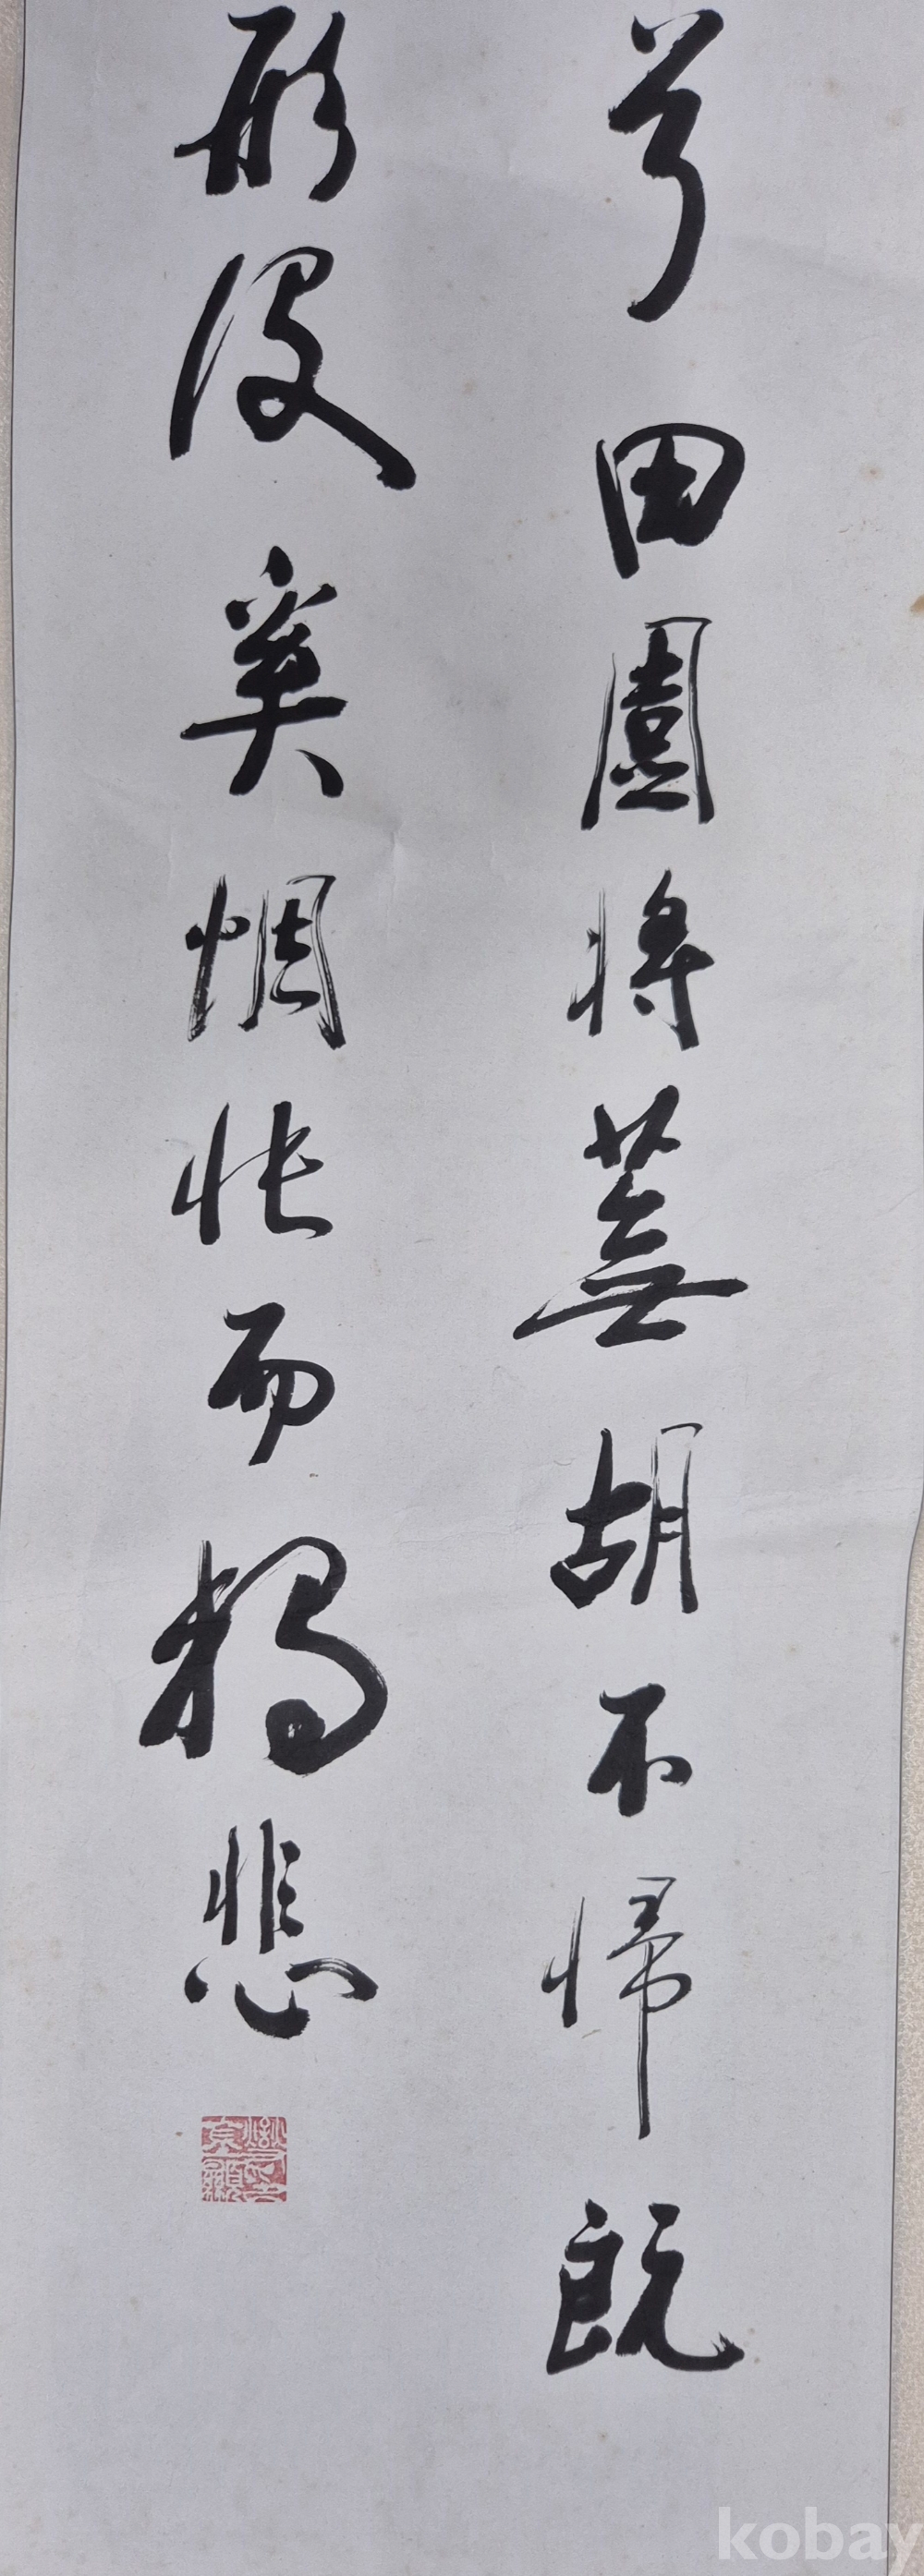 兮田園將蕪胡不歸既
形役奚惆悵而獨悲
kobay